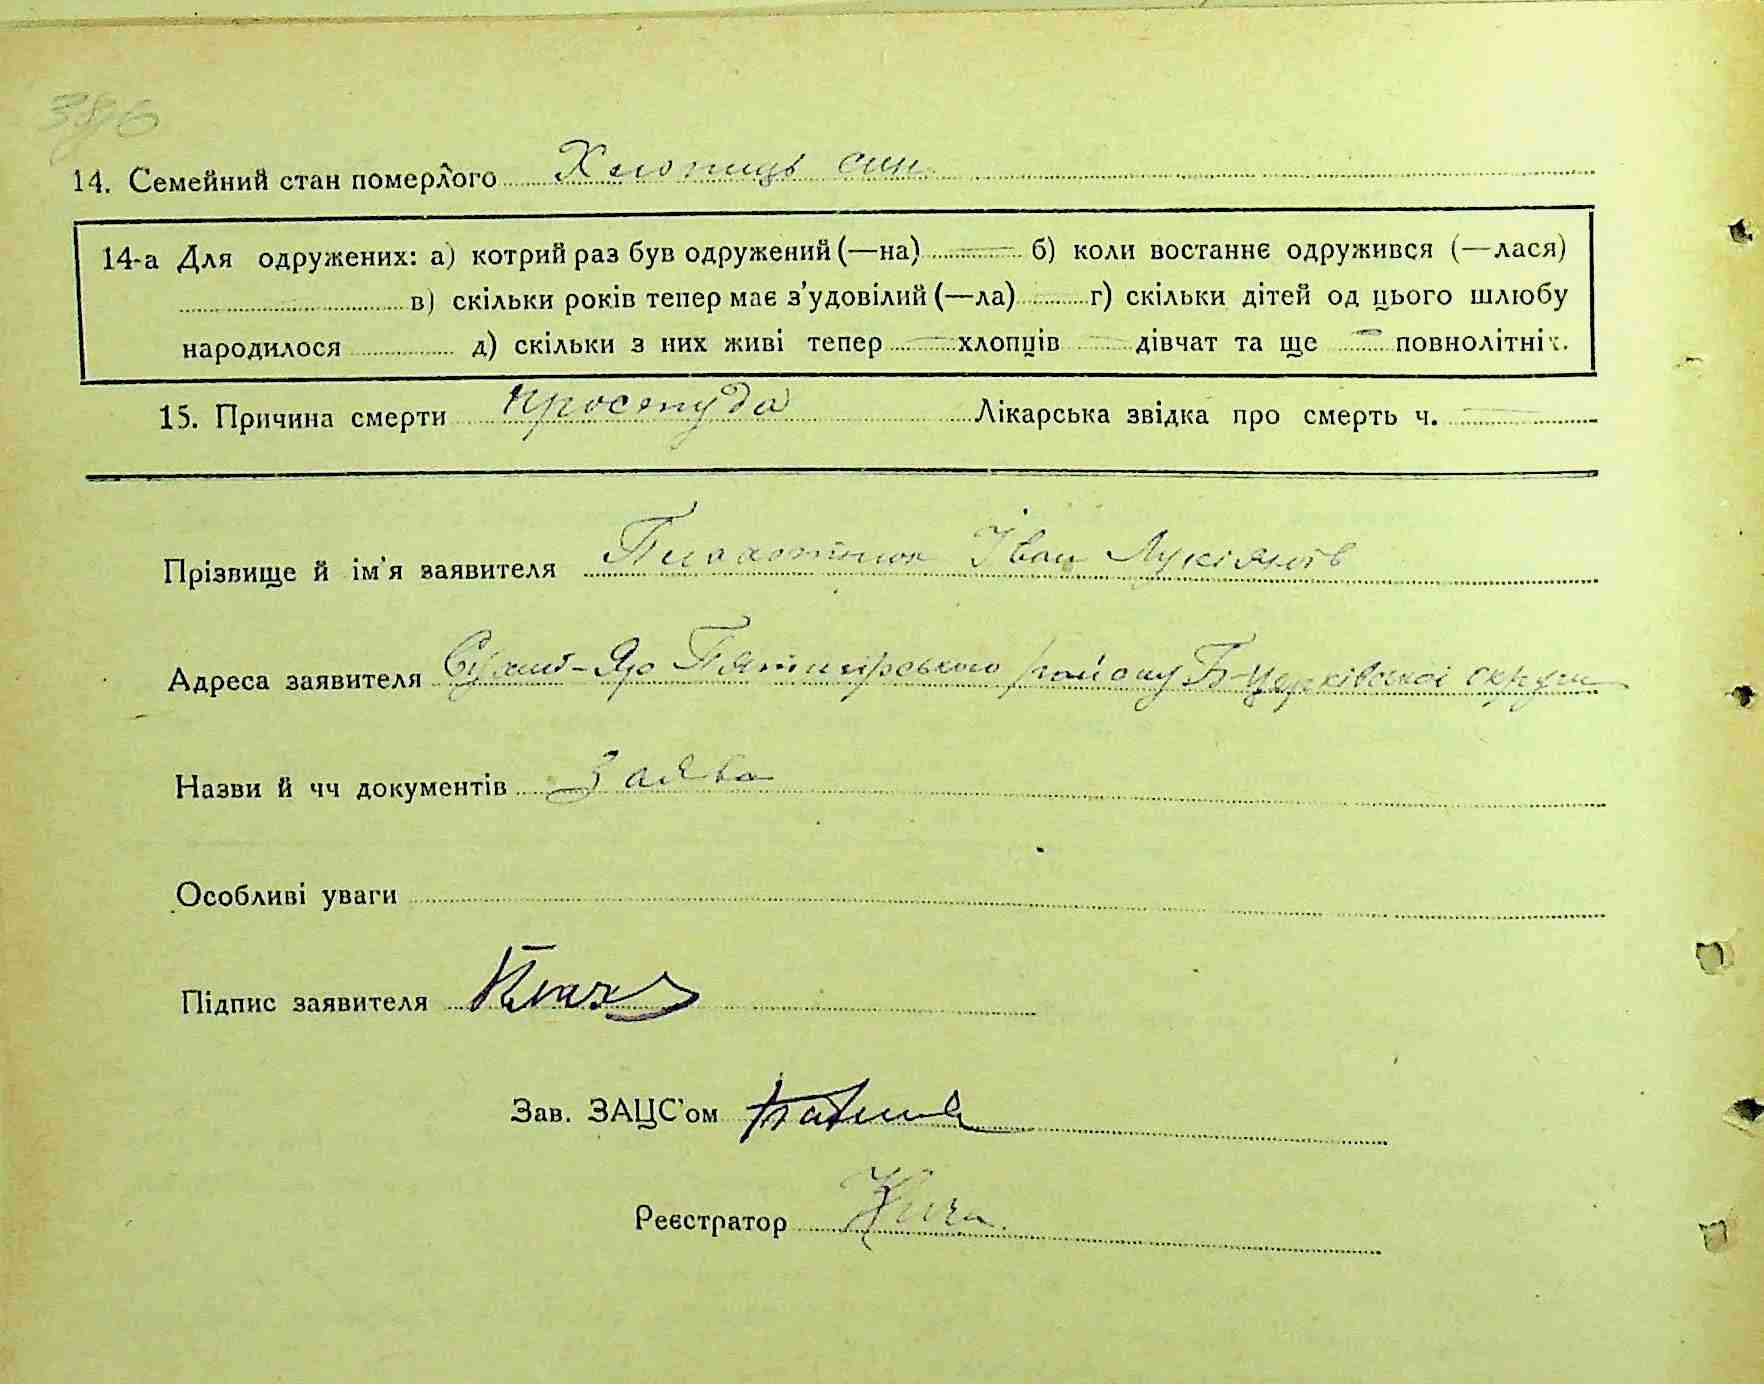 386
14. Семейний стан померлого Хлопець син
14-а Для одружених: а) котрий раз був одружений (—на) — б) коли востаннє одружився (—лася)
в) скільки років тепер має з'удовілий (—ла) — г) скільки дітей од цього шлюбу
народилося д) скільки з них живі тепер — хлопців — дівчат та ще — повнолітніх.
15. Причина смерти простуда Лікарська звідка про смерть ч. —
Прізвище й ім'я заявителя Іван Лукіянов
Адреса заявителя Сухий-Яр Пятигірського району Б-Церківської округи
Назви й чч документів Заява
Особливі уваги
Підпис заявителя
Зав. ЗАЦС'ом
Реєстратор